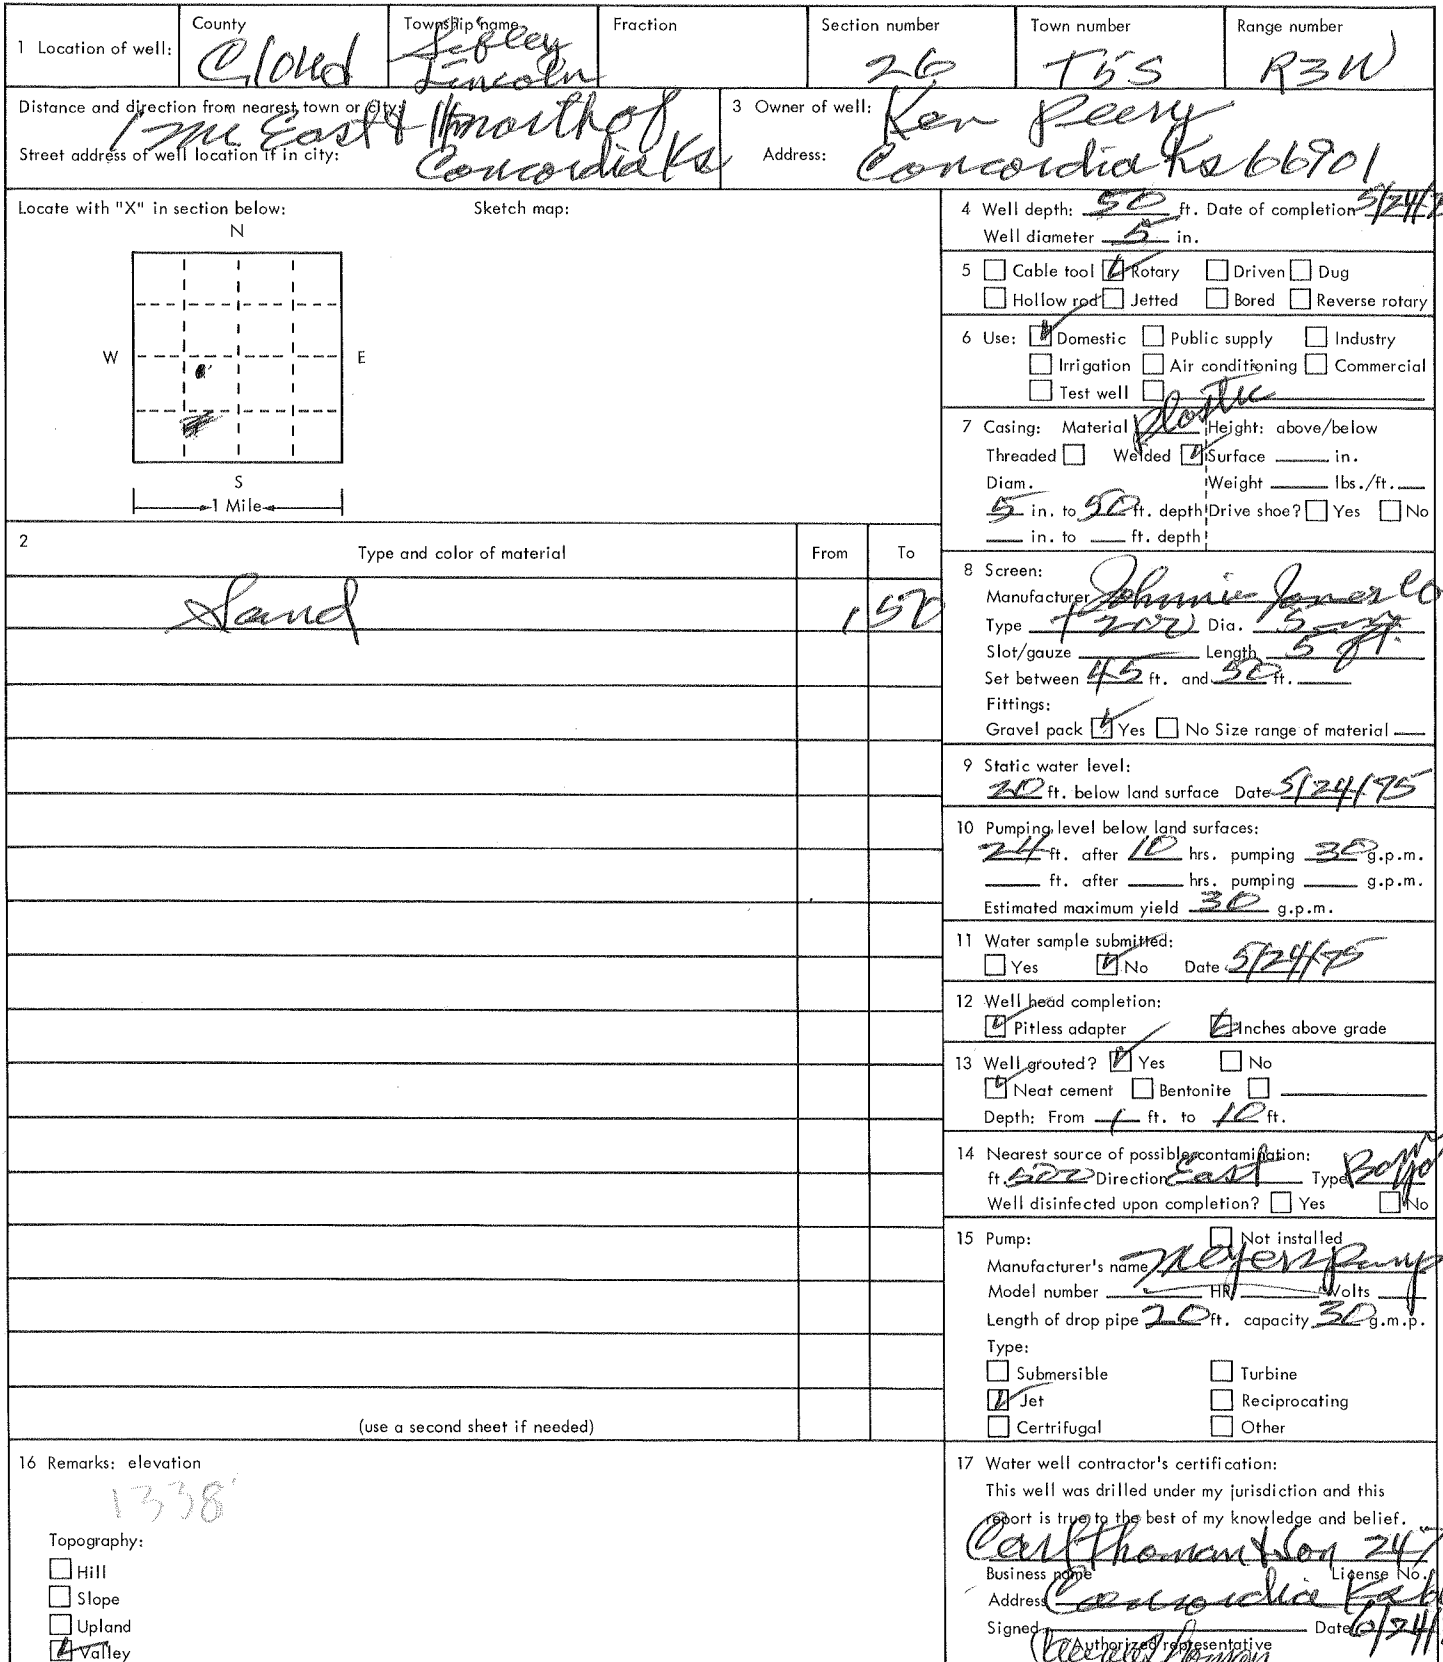 1 Location of well:
County
Cloud
Township name
Sibley
Lincoln
Fraction
Section number
26
Town number
T5S
Range number
R3W
Distance and direction from nearest town or city:
1 mi East & north of
Street address of well location if in city:
Concordia Ks
3 Owner of well:
Ken Peery
Address:
Concordia Ks 66901
Locate with "X" in section below:
Sketch map:
N
W
E
S
1 Mile
4 Well depth: 50 ft. Date of completion 5/24/7
Well diameter 5 in.
5 Cable tool Rotary Driven Dug
Hollow rod Jetted Bored Reverse rotary
6 Use: Domestic Public supply Industry
Irrigation Air conditioning Commercial
Test well
7 Casing: Material plastic Height: above/below
Threaded Welded Surface in.
Diam. Weight lbs./ft.
5 in. to 50 ft. depth Drive shoe? Yes No
in. to ft. depth
2
Type and color of material
From
To
Sand
1
50
(use a second sheet if needed)
8 Screen:
Manufacturer Johnnie Jones Co
Type Dia. 5
Slot/gauze Length 5 ft.
Set between 45 ft. and 50 ft.
Fittings:
Gravel pack Yes No Size range of material
9 Static water level:
20 ft. below land surface Date 5/24/75
10 Pumping level below land surfaces:
24 ft. after 10 hrs. pumping 30 g.p.m.
ft. after hrs. pumping g.p.m.
Estimated maximum yield 30 g.p.m.
11 Water sample submitted:
Yes No Date 5/24/75
12 Well head completion:
Pitless adapter Inches above grade
13 Well grouted? Yes No
Neat cement Bentonite
Depth: From 1 ft. to 10 ft.
14 Nearest source of possible contamination:
ft. 500 Direction East Type
Well disinfected upon completion? Yes No
15 Pump: Not installed
Manufacturer's name Meyers Pump
Model number HP Volts
Length of drop pipe 20 ft. capacity 30 g.m.p.
Type:
Submersible Turbine
Jet Reciprocating
Certrifugal Other
16 Remarks: elevation
1338'
Topography:
Hill
Slope
Upland
Valley
17 Water well contractor's certification:
This well was drilled under my jurisdiction and this
report is true to the best of my knowledge and belief.
Carl Thoman & Son 247
Business name License No.
Address Concordia
Signed Date 6/24/
Authorized representative